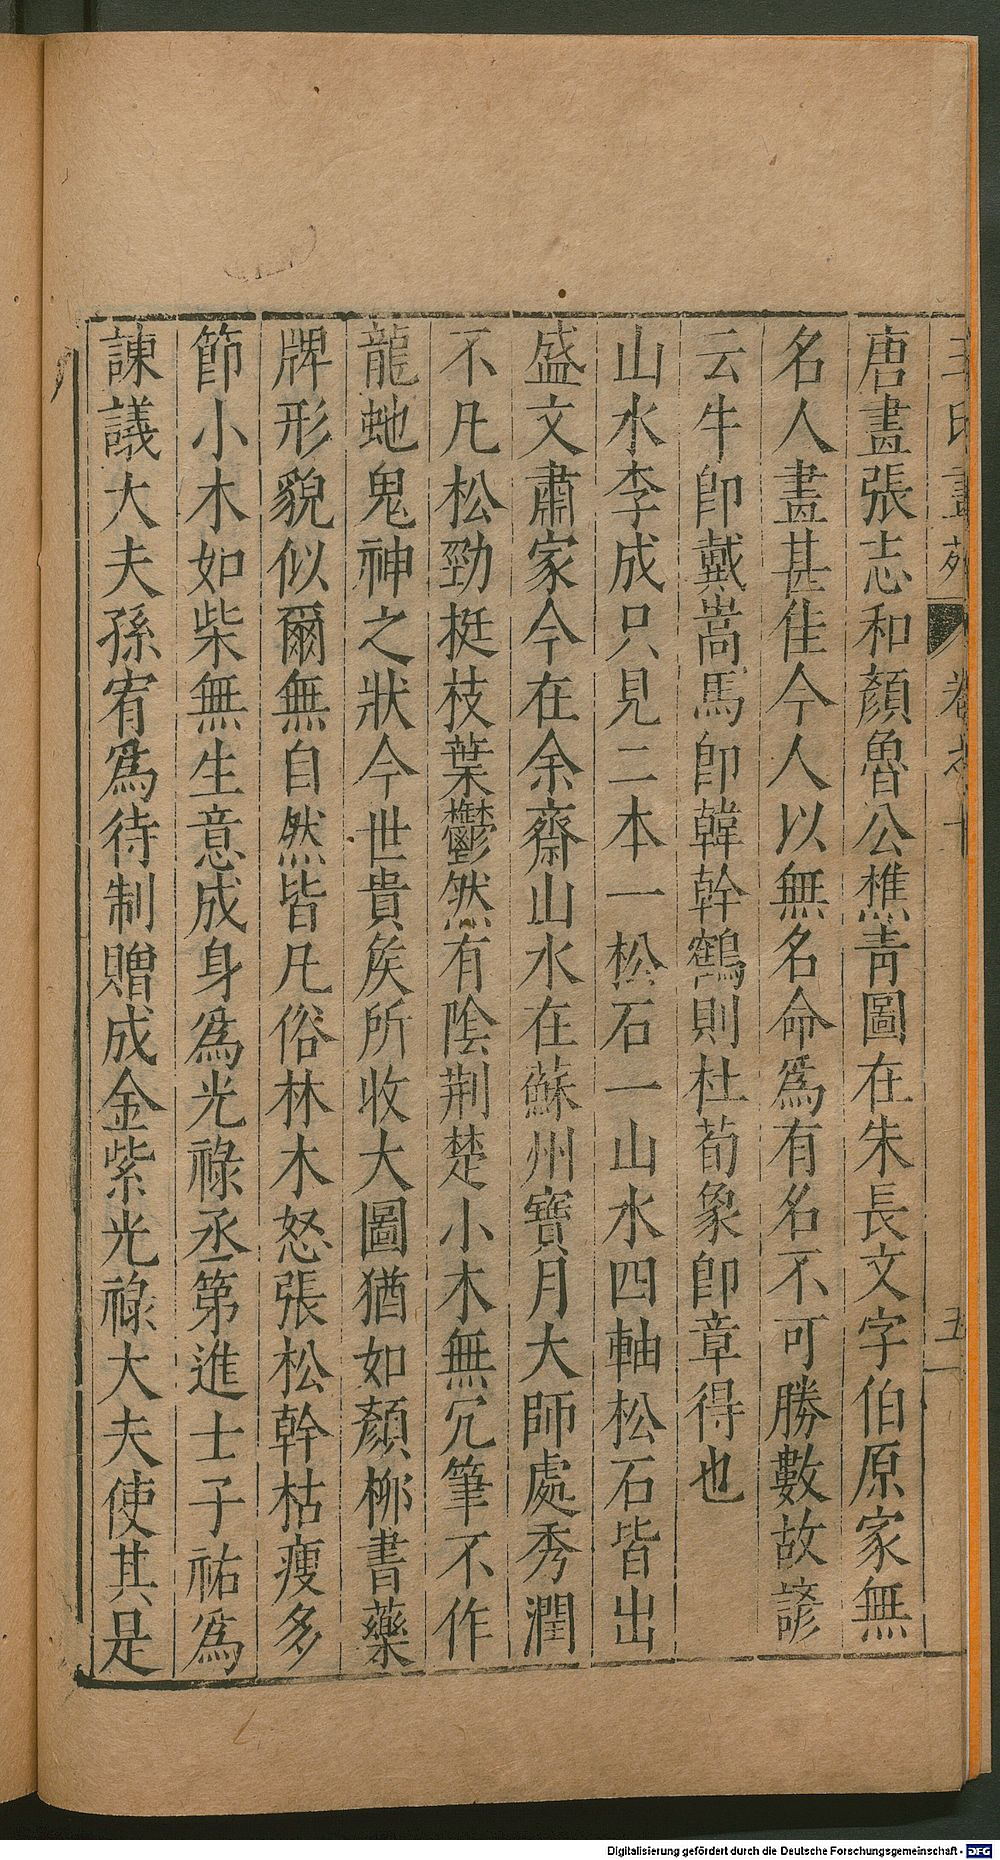 王氏畫苑 卷之十 五
唐畫張志和顏魯公樵青圖在朱長文字伯原家無
名人畫甚佳今人以無名命爲有名不可勝數故諺
云牛卽戴嵩馬卽韓幹鶴則杜荀象卽章得也
山水李成只見二本一松石一山水四軸松石皆出
盛文肅家今在余齋山水在蘇州寶月大師處秀潤
不凡松勁挺枝葉鬱然有陰荆楚小木無冗筆不作
龍虵鬼神之狀今世貴矦所收大圖猶如顏桺書藥
牌形貌似爾無自然皆凡俗林木怒張松幹枯瘦多
節小木如柴無生意成身爲光祿丞第進士子祐爲
諫議大夫孫宥爲待制贈成金紫光祿大夫使其是
Digitalisierung gefördert durch die Deutsche Forschungsgemeinschaft - DFG